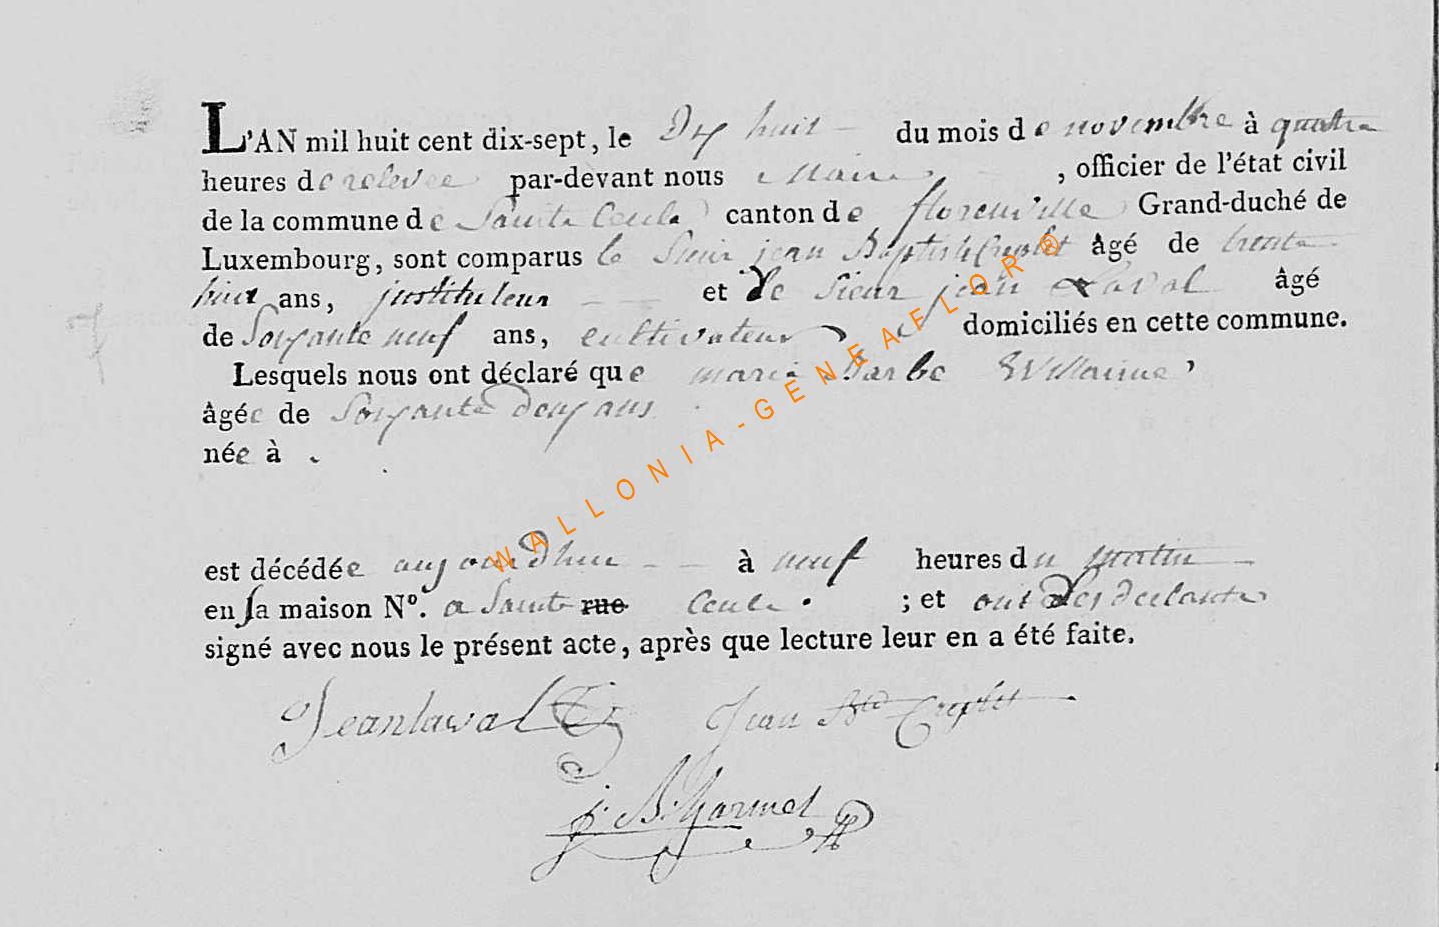 L'AN mil huit cent dix-sept, le Dix huit du mois de novembre à quatre
heures de relevée par-devant nous Maire, officier de l'état civil
de la commune de Sainte Cecile canton de florenville Grand-duché de
Luxembourg, sont comparus le Sieur jean Baptiste âgé de trente
huit ans, jnstituteur et le Sieur jean Laval âgé
de Soixante neuf ans, cultivateur domiciliés en cette commune.
Lesquels nous ont déclaré que marie barbe Willaime,
âgée de Soixante deux ans
née à
est décédée aujourdhui à neuf heures du matin
en sa maison N°. a Sainte rue Cecile ; et ont Les declarants
signé avec nous le présent acte, après que lecture leur en a été faite.
Jean laval Jean Bte
j. B.
WALLONIA-GENEAFLOR®